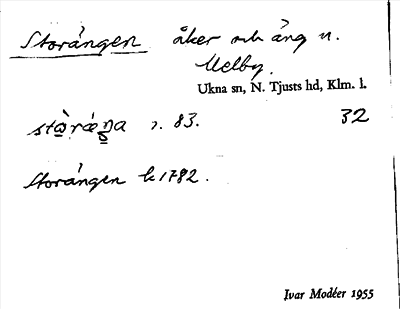 Storängen åker och äng n.
Melby.
Ukna sn, N. Tjusts hd, Klm. l.
32
83.
Storängen k 1782.
Ivar Modéer 1955